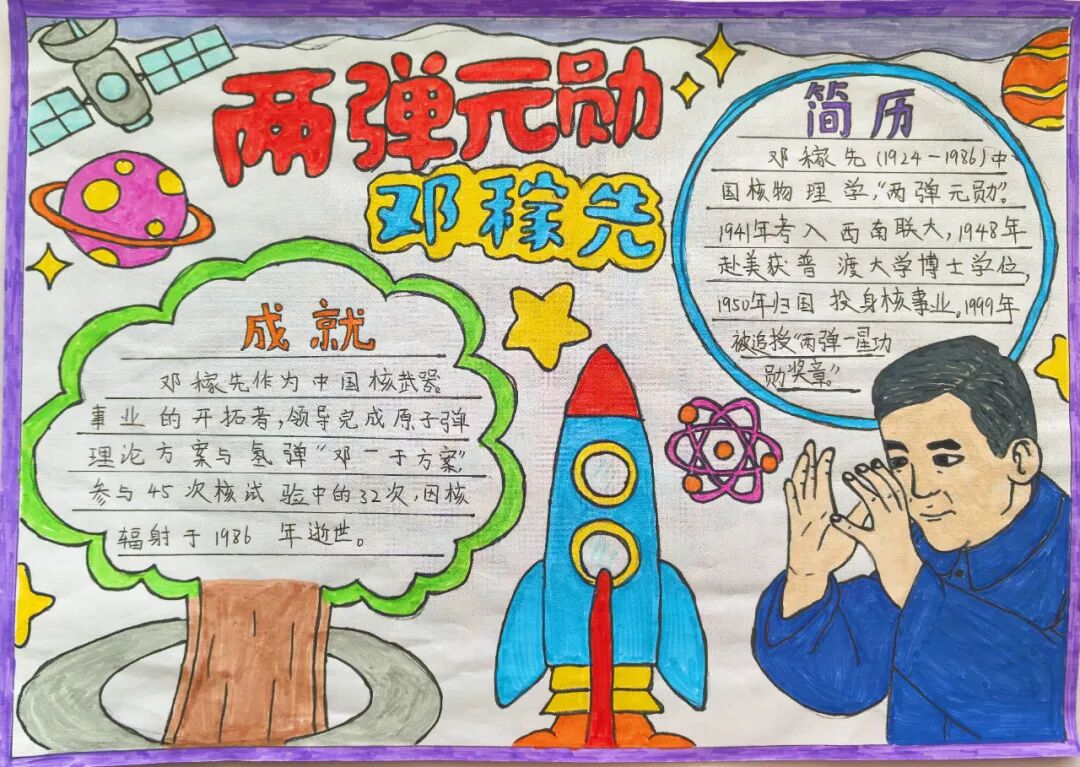 两弹元勋
邓稼先
简历
邓稼先(1924-1986)中
国核物理学,“两弹元勋”。
1941年考入西南联大,1948年
赴美获普渡大学博士学位,
1950年归国投身核事业。1999年
被追授“两弹一星功
勋奖章。”
成就
邓稼先作为中国核武器
事业的开拓者,领导完成原子弹
理论方案与氢弹“邓一于方案”,
参与45次核试验中的32次,因核
辐射于1986年逝世。